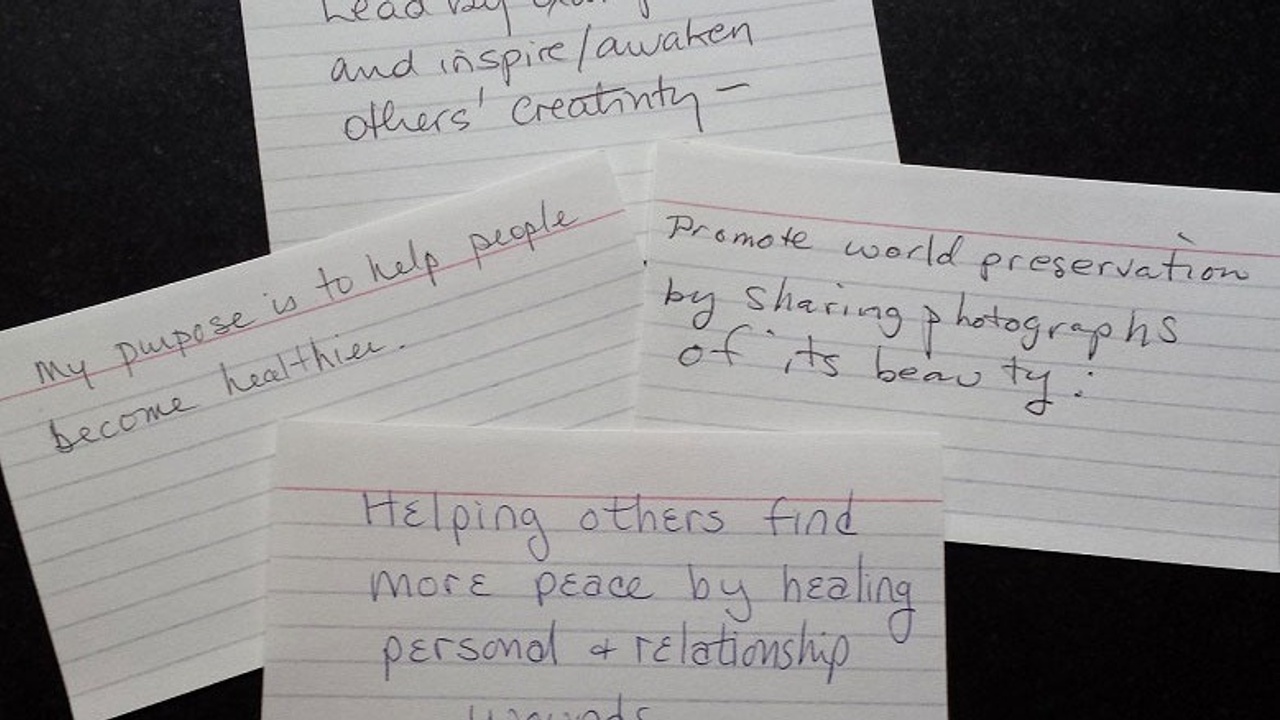 Lead by
and inspire/awaken
others' creativity –
My purpose is to help people
become healthier.
Promote world preservation
by sharing photographs
of its beauty.
Helping others find
more peace by healing
personal + relationship
wounds